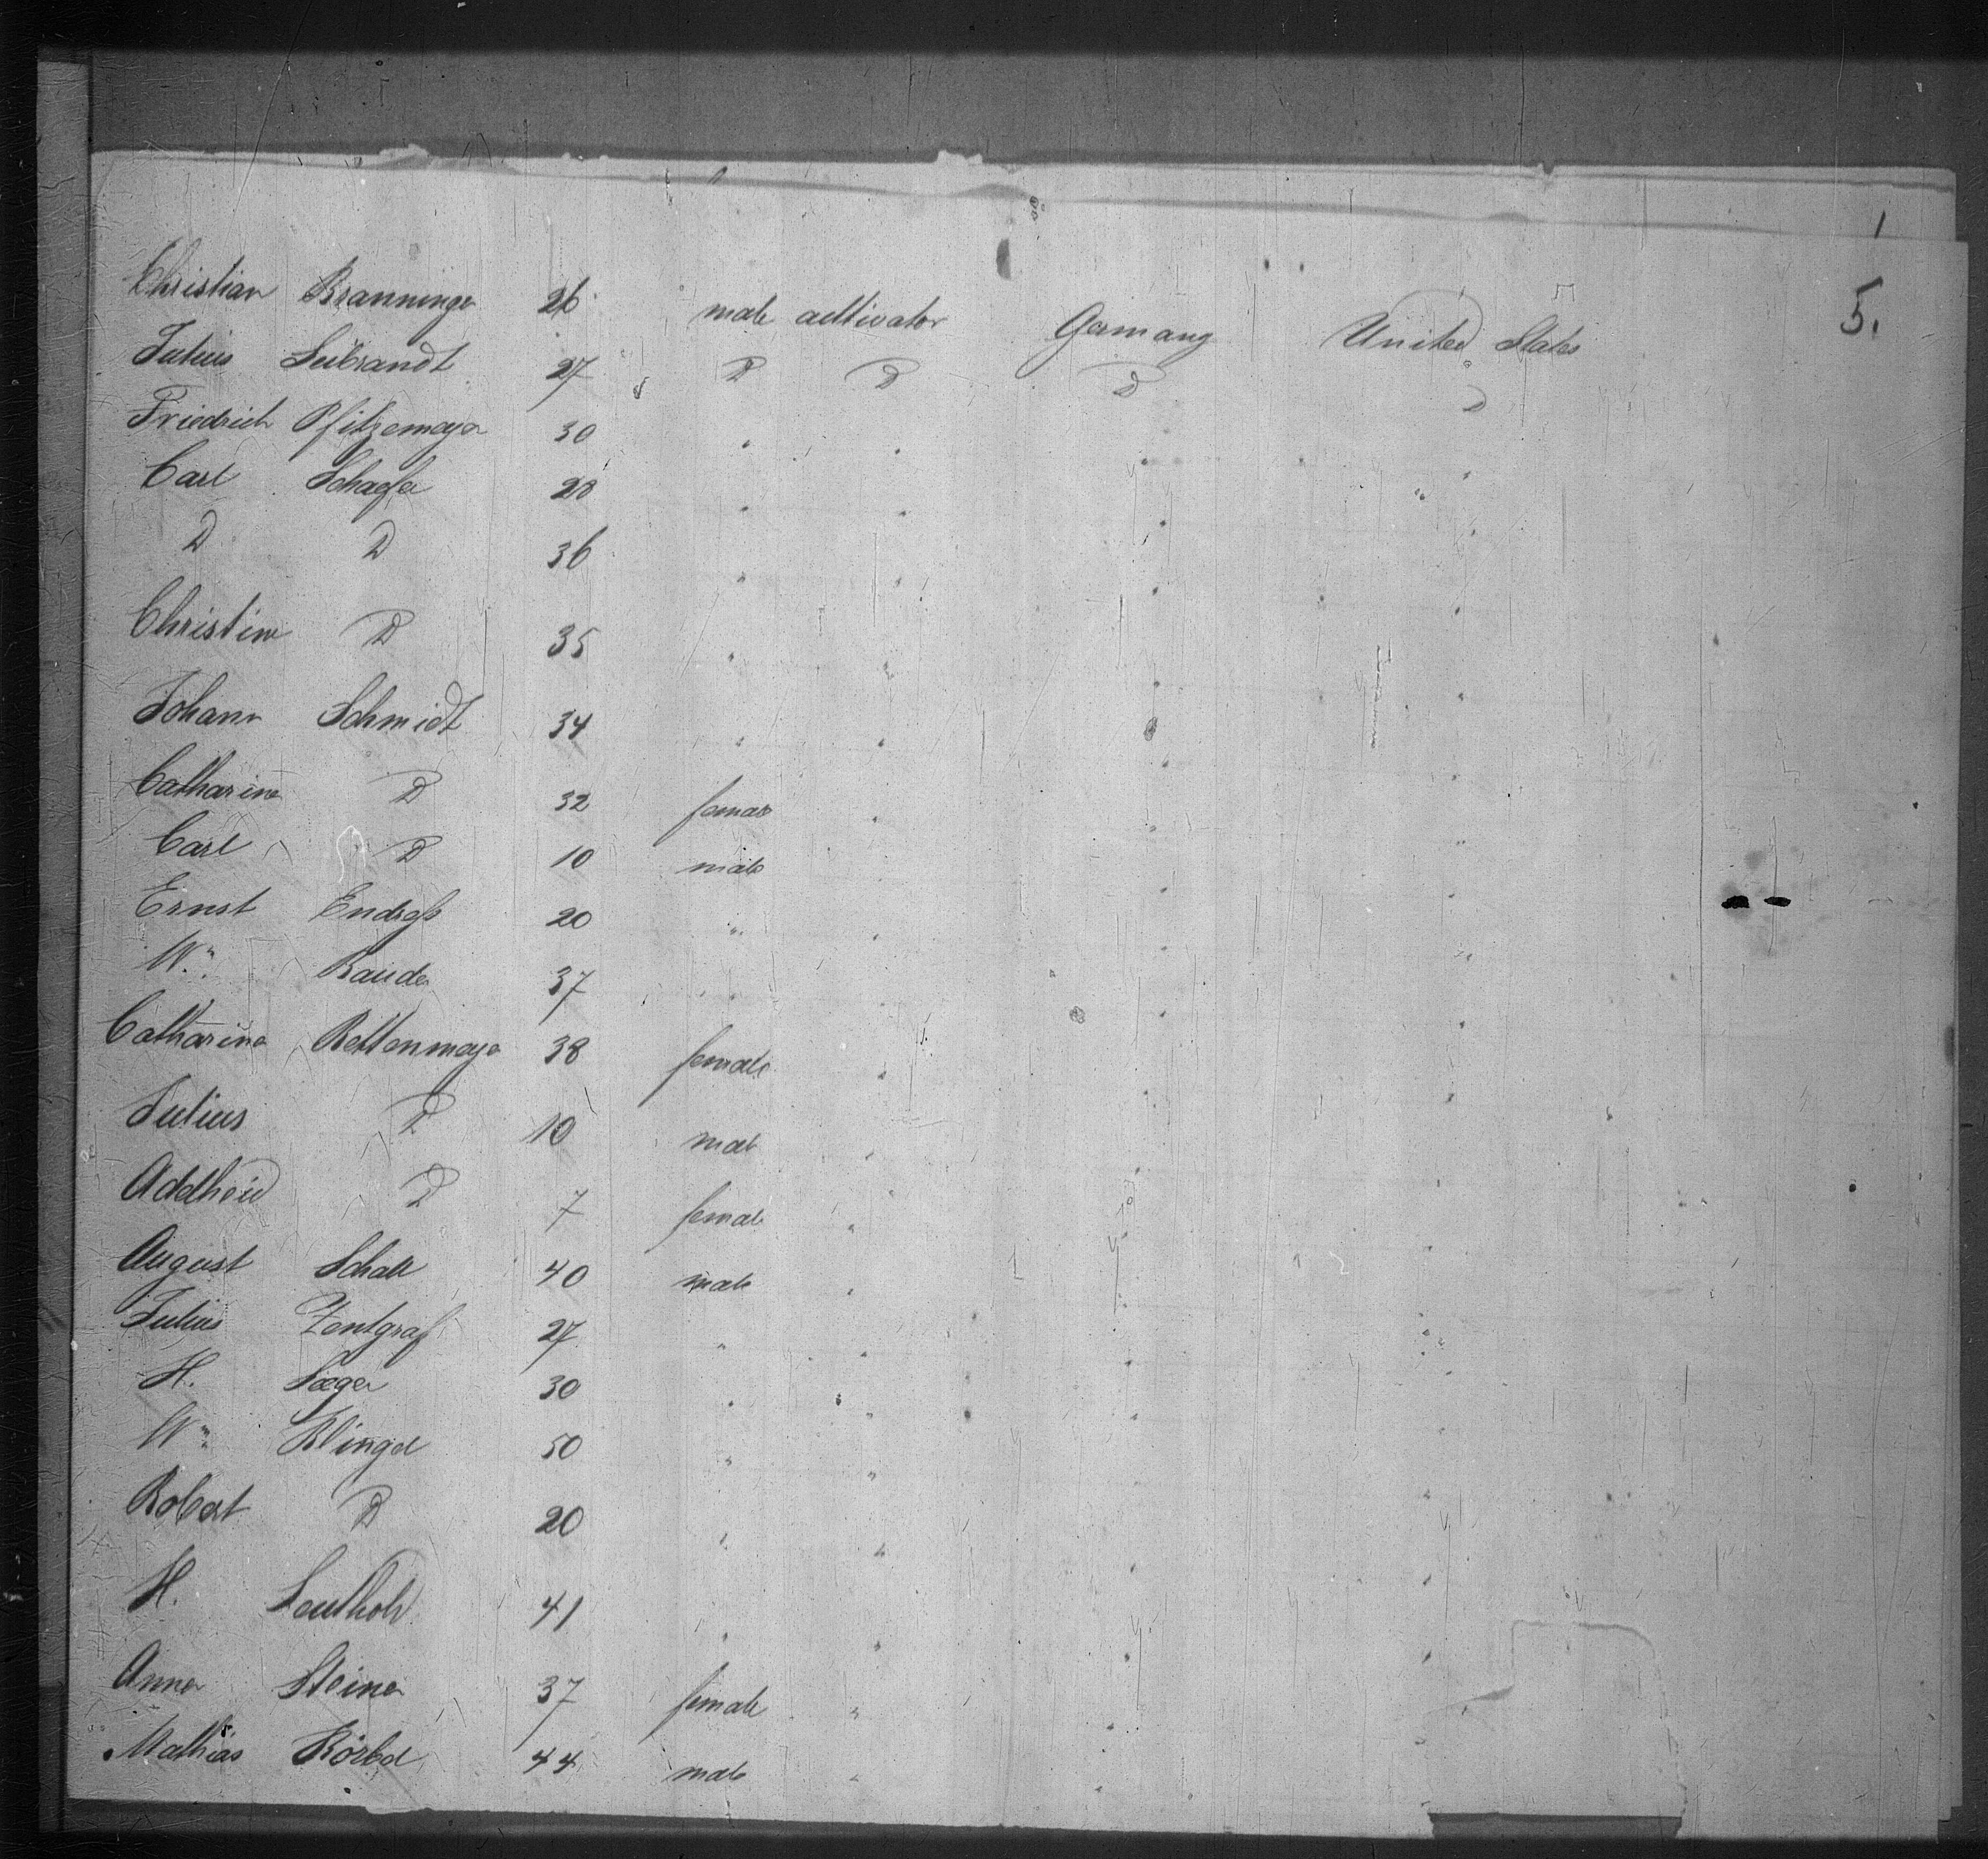 1
5.
Christian Branninger 26 male cultivator Germany United States
Julius Leibrandt 27 D D D D
Friedrich Pfitzemayer 30 " " " "
Carl Schaefer 28 " " " "
D D 36 " " " "
Christine D 35 " " " "
Johann Schmidt 34 " " " "
Catharina D 32 female " " "
Carl D 10 male " "
Ernst Endress 20 " " " "
Wm Bauder 37 " " " "
Catharina Rettenmayer 38 female " " "
Julius D 10 male " "
Adelheid D 7 female "
August Schall 40 male "
Julius Zentgraf 27 " " " "
H. 30 " " " "
Wm Klingel 50 " " "
Robert D 20 " " "
H. 41 " " " "
Anna Steiner 37 female " "
Mathias Körbel 44 male " "